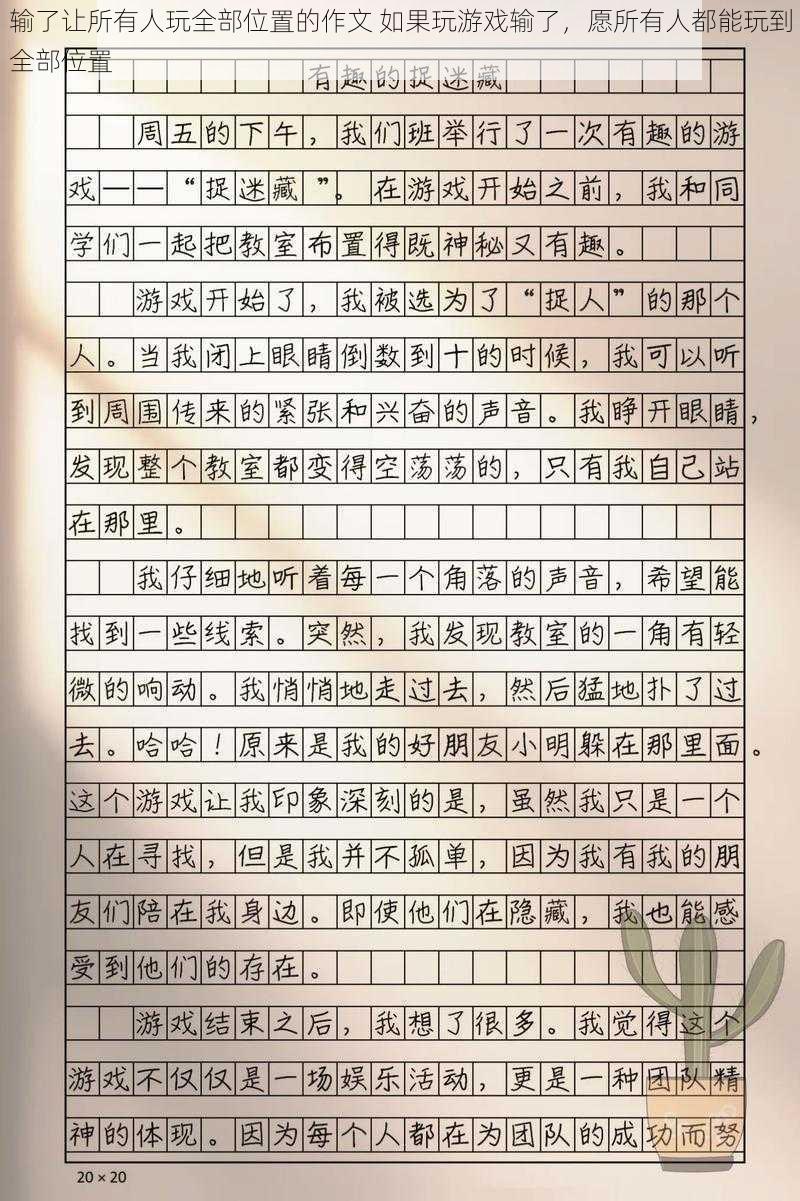 输了让所有人玩全部位置的作文 如果玩游戏输了，愿所有人都能玩到
全部位置
有趣的捉迷藏
周五的下午，我们班举行了一次有趣的游
戏——“捉迷藏”。在游戏开始之前，我和同
学们一起把教室布置得既神秘又有趣。
游戏开始了，我被选为了“捉人”的那个
人。当我闭上眼睛倒数到十的时候，我可以听
到周围传来的紧张和兴奋的声音。我睁开眼睛，
发现整个教室都变得空荡荡的，只有我自己站
在那里。
我仔细地听着每一个角落的声音，希望能
找到一些线索。突然，我发现教室的一角有轻
微的响动。我悄悄地走过去，然后猛地扑了过
去。哈哈！原来是我的好朋友小明躲在那里面。
这个游戏让我印象深刻的是，虽然我只是一个
人在寻找，但是我并不孤单，因为我有我的朋
友们陪在我身边。即使他们在隐藏，我也能感
受到他们的存在。
游戏结束之后，我想了很多。我觉得这个
游戏不仅仅是一场娱乐活动，更是一种团队精
神的体现。因为每个人都在为团队的成功而努
20×20